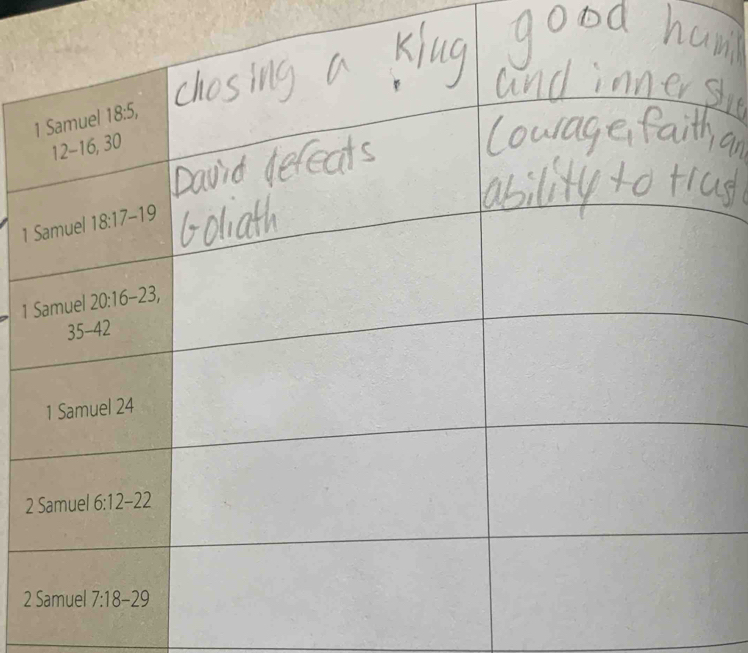 1 Samuel 18:5,
12–16, 30
chosing a King
good
and inner
1 Samuel 18:17–19
David defeats
Goliath
Courage, faith,
ability to trust
1 Samuel 20:16–23,
35–42
1 Samuel 24
2 Samuel 6:12–22
2 Samuel 7:18–29